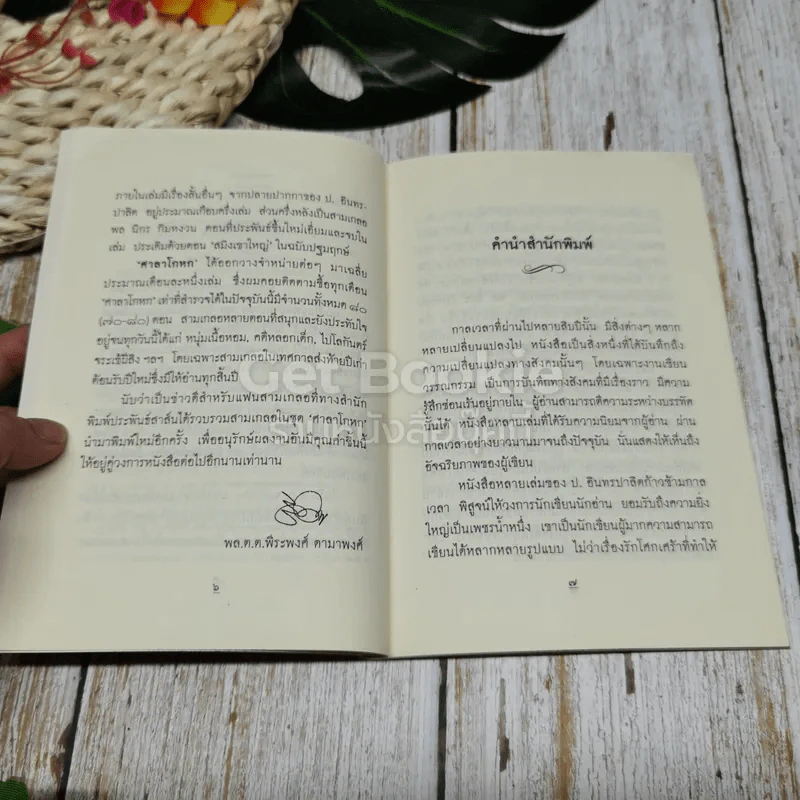 ภายในเล่มมีเรื่องสั้นอื่นๆ จากปลายปากกาของ ป. อินทร-
ปาลิต อยู่ประมาณเกือบครึ่งเล่ม ส่วนครึ่งหลังเป็นสามเกลอ
พล นิกร กิมหงวน ตอนที่ประพันธ์ขึ้นใหม่เอี่ยมและจบใน
เล่ม ประเดิมด้วยตอน 'สมิงเขาใหญ่' ในฉบับปฐมฤกษ์
'ศาลาโกหก' ได้ออกวางจำหน่ายต่อๆ มาเฉลี่ย
ประมาณเดือนละหนึ่งเล่ม ซึ่งผมคอยติดตามซื้อทุกเดือน
'ศาลาโกหก' เท่าที่สำรวจได้ในปัจจุบันนี้มีจำนวนทั้งหมด ๘๐
(๗๐-๘๐) ตอน สามเกลอหลายตอนที่สนุกและยังประทับใจ
อยู่จนทุกวันนี้ได้แก่ หนุ่มเนื้อหอม, คดีหลอกเด็ก, ไปโลกันตร์
จระเข้ผีสิง ฯลฯ โดยเฉพาะสามเกลอในเทศกาลส่งท้ายปีเก่า
ต้อนรับปีใหม่ซึ่งมีให้อ่านทุกสิ้นปี
นับว่าเป็นข่าวดีสำหรับแฟนสามเกลอที่ทางสำนัก
พิมพ์ประพันธ์สาส์นได้รวบรวมสามเกลอในชุด 'ศาลาโกหก'
นำมาพิมพ์ใหม่อีกครั้ง เพื่ออนุรักษ์ผลงานอันมีคุณค่าชิ้นนี้
ให้อยู่คู่วงการหนังสือต่อไปอีกนานเท่านาน
พล.ต.ต.พีระพงศ์ ดามาพงศ์
๖
คำนำสำนักพิมพ์
กาลเวลาที่ผ่านไปหลายสิบปีนั้น มีสิ่งต่างๆ หลาก
หลายเปลี่ยนแปลงไป หนังสือเป็นสิ่งหนึ่งที่ได้บันทึกถึง
ความเปลี่ยนแปลงทางสังคมนั้นๆ โดยเฉพาะงานเขียน
วรรณกรรม เป็นการบันทึกทางสังคมที่มีเรื่องราว มีความ
รู้สึกซ่อนเร้นอยู่ภายใน ผู้อ่านสามารถตีความระหว่างบรรทัด
นั้นได้ หนังสือหลายเล่มที่ได้รับความนิยมจากผู้อ่าน ผ่าน
กาลเวลาอย่างยาวนานมาจนถึงปัจจุบัน นั่นแสดงให้เห็นถึง
อัจฉริยภาพของผู้เขียน
หนังสือหลายเล่มของ ป. อินทรปาลิตก้าวข้ามกาล
เวลา พิสูจน์ให้วงการนักเขียนนักอ่าน ยอมรับถึงความยิ่ง
ใหญ่เป็นเพชรน้ำหนึ่ง เขาเป็นนักเขียนผู้มากความสามารถ
เขียนได้หลากหลายรูปแบบ ไม่ว่าเรื่องรักโศกเศร้าที่ทำให้
๗
Get Bookie